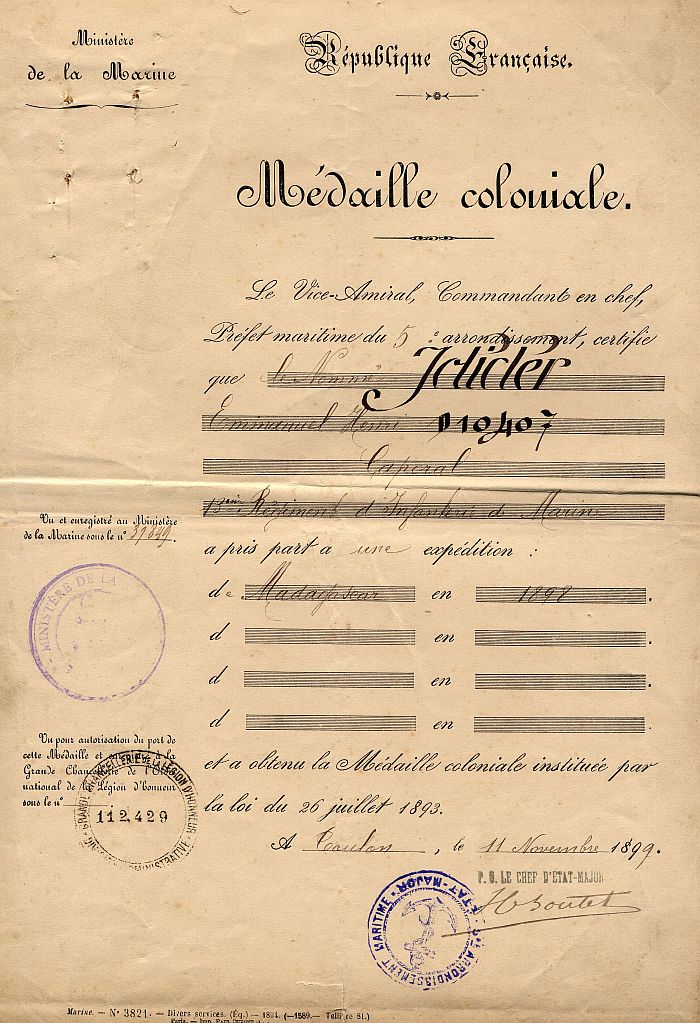 Ministère
de la Marine
République Française.
Médaille coloniale.
Le Vice-Amiral, Commandant en chef,
Préfet maritime du 5e arrondissement, certifie
que le Nommé
Emmanuel Henri D10407
Caporal
13eme Régiment d'Infanterie de Marine
a pris part a une expédition :
de Madagascar en 1898.
d en .
d en .
d en .
et a obtenu la Médaille coloniale instituée par
la loi du 26 juillet 1893.
A Toulon, le 11 Novembre 1899.
P. O. LE CHEF D'ETAT-MAJOR
Vu et enregistré au Ministère
de la Marine sous le n° 37849.
MINISTÈRE DE LA
Vu pour autorisation du port de
cette Médaille et à la
Grande
national de la Légion d'honneur
sous le n°
GRANDE CHANCELLERIE DE LA LÉGION D'HONNEUR
112.429
ADMINISTRATIVE
ARRONDISSEMENT MARITIME - ETAT-MAJOR
Marine. - N° 3821. - Divers services. (Éq.) - 1894. (-1589.- 81.)